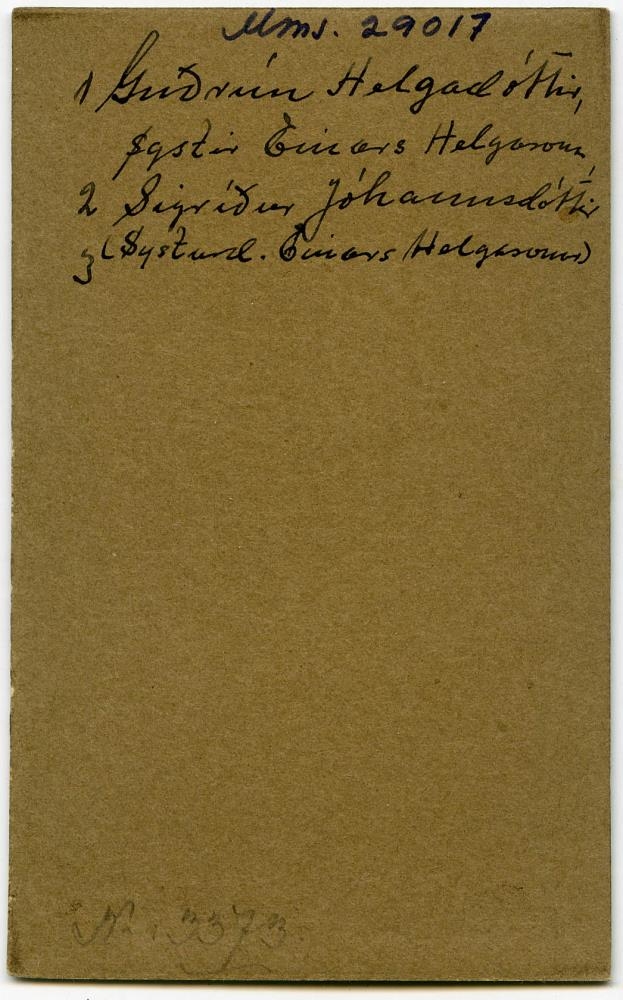 Mms. 29017
1 Guðrún Helgadóttir,
systir Einars Helgasonar,
2 Sigríður Jóhannsdóttir
3 (Systurd. Einars Helgasonar)
N: 3373